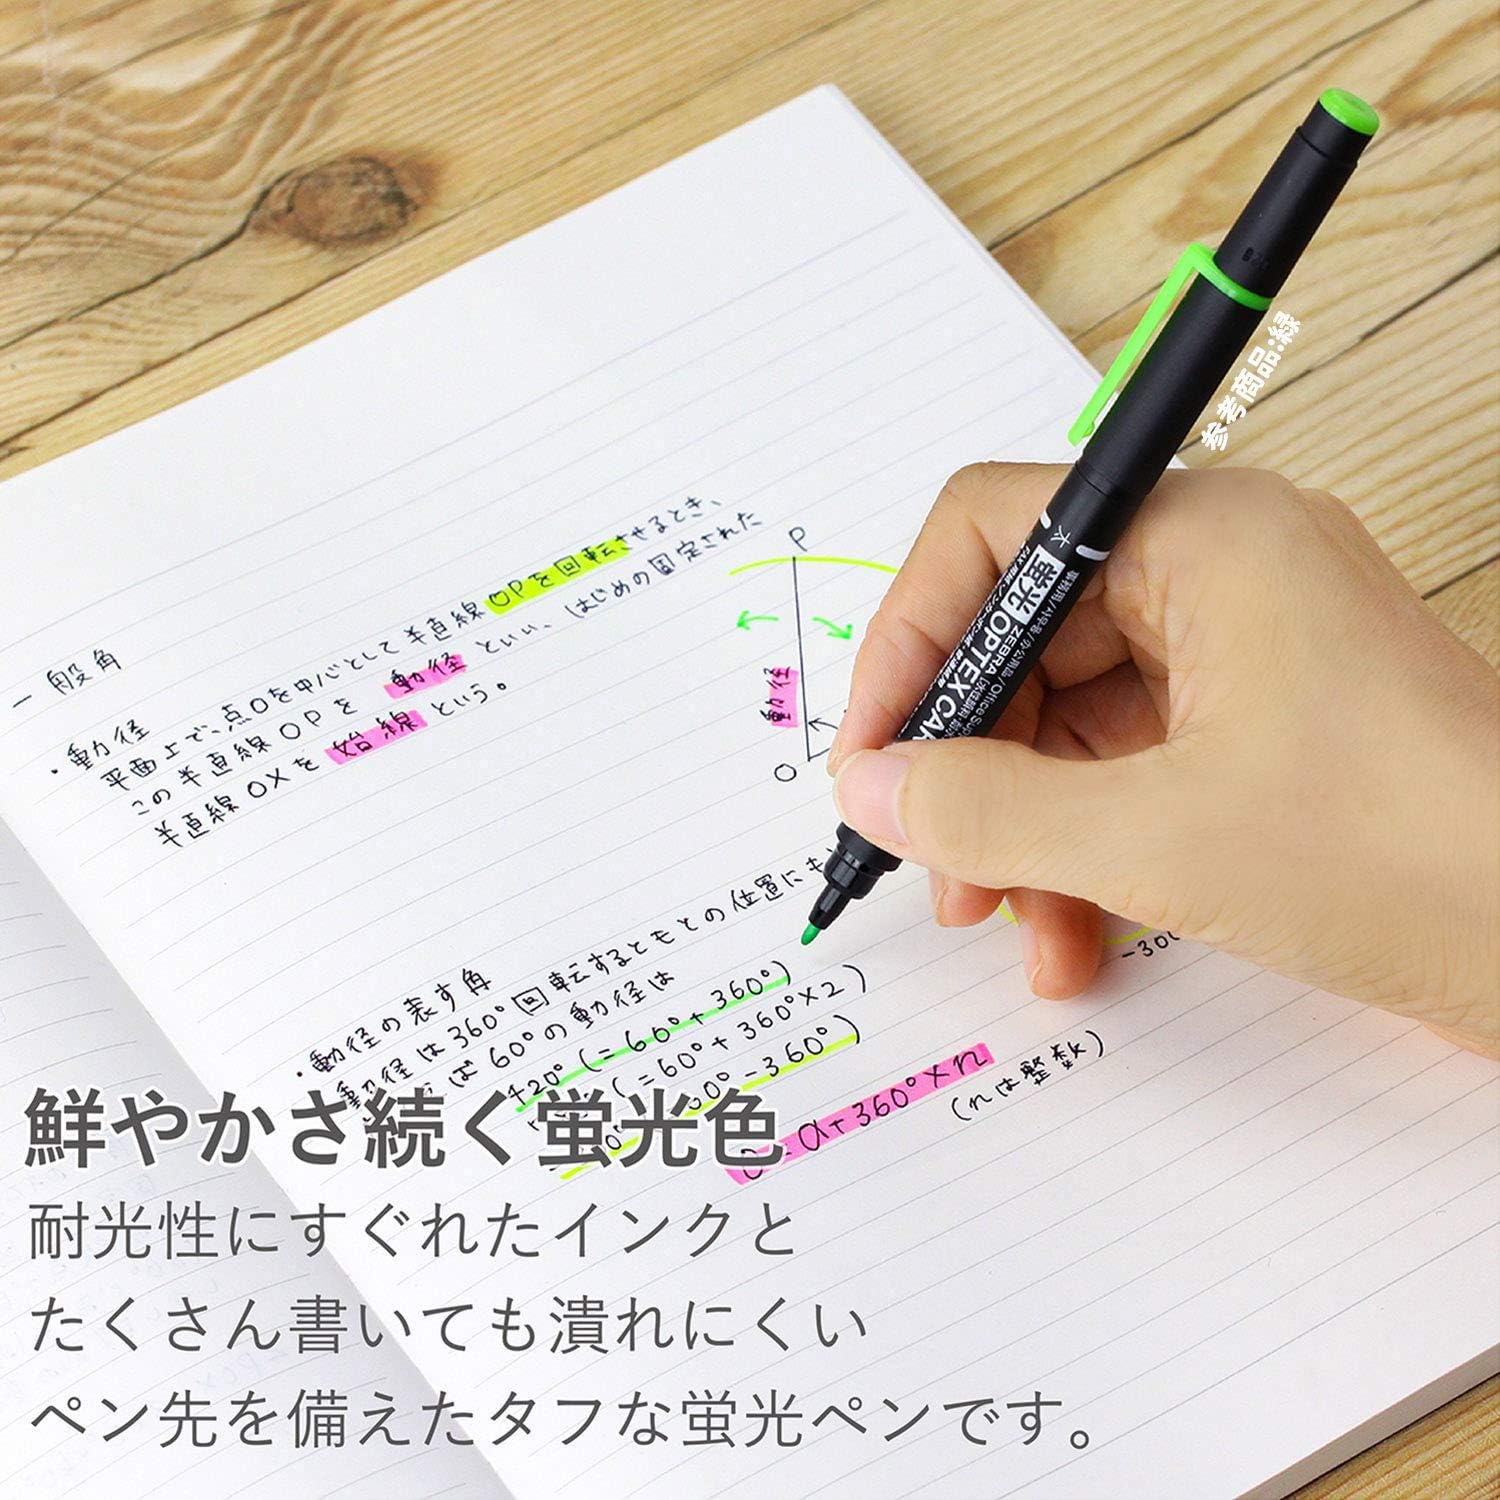 参考商品:緑
太
蛍光 OPTEX CAR
ZEBRA
事務用/사무용/办公用品/Office Sup
一般角
・動径
平面上で、点Oを中心として半直線OPを回転させるとき、
この半直線OPを 動径 といい、はじめの固定された
半直線OXを 始線 という。
P
動径
O
・動径の表す角
動径は360°回転するともとの位置にも
ば60°の動径は
420°(=60°+360°)
(=60°+360°×2)
0°-360°)
α+360°×n
(nは整数)
鮮やかさ続く蛍光色
耐光性にすぐれたインクと
たくさん書いても潰れにくい
ペン先を備えたタフな蛍光ペンです。